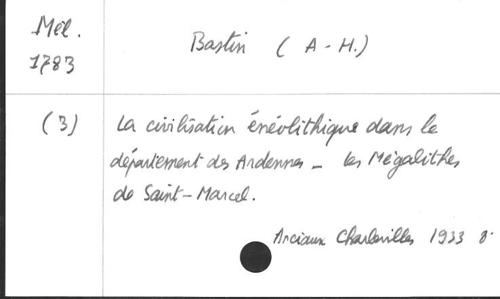 Mél. 1783
Bastin (A-H.)
(3)
La civilisation énéolithique dans le
département des Ardennes - les Mégalithes
de Saint-Marcel.
Anciaux Charleville 1933 8°